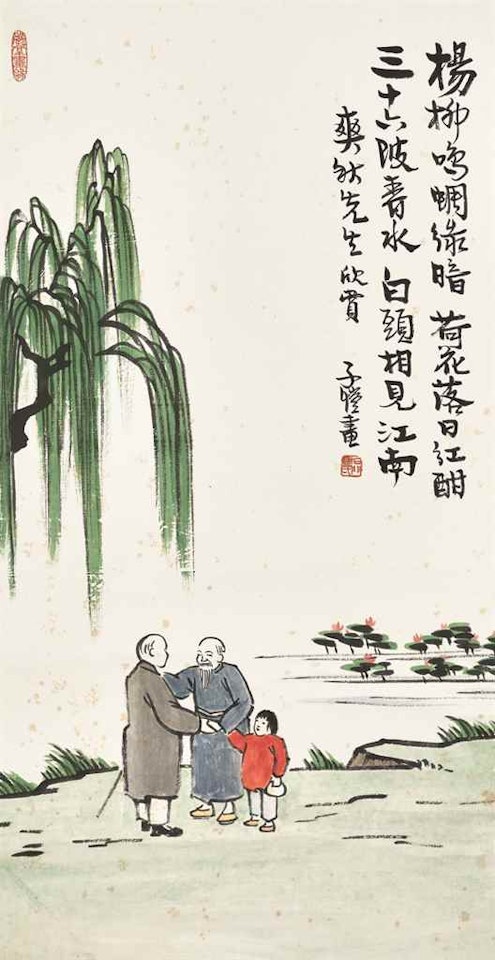 楊柳鳴蜩綠暗 荷花落日紅酣
三十六陂春水 白頭相見江南
爽秋先生欣賞 子愷畫